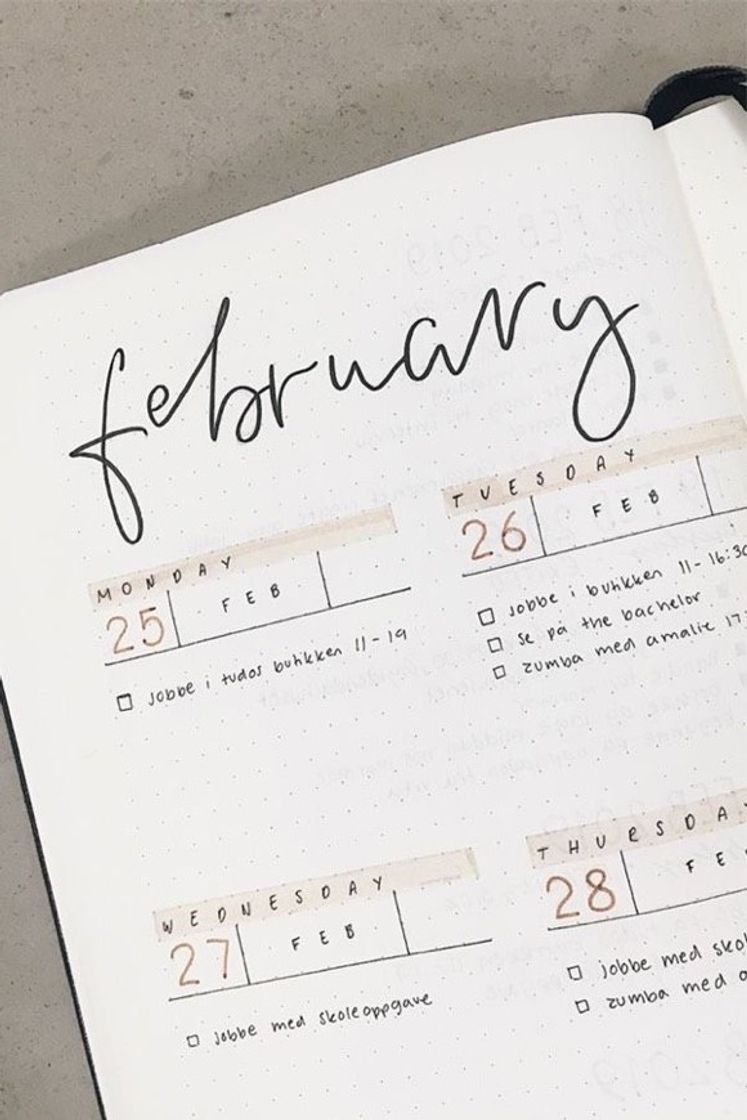 february
MONDAY
25 FEB
□ jobbe i tudos butikken 11-19
TUESDAY
26 FEB
□ jobbe i butikken 11-16:30
□ se på the bachelor
□ zumba med amalie 17:
WEDNESDAY
27 FEB
□ jobbe med skoleoppgave
THURSDAY
28 FE
□ jobbe med skol
□ zumba med a